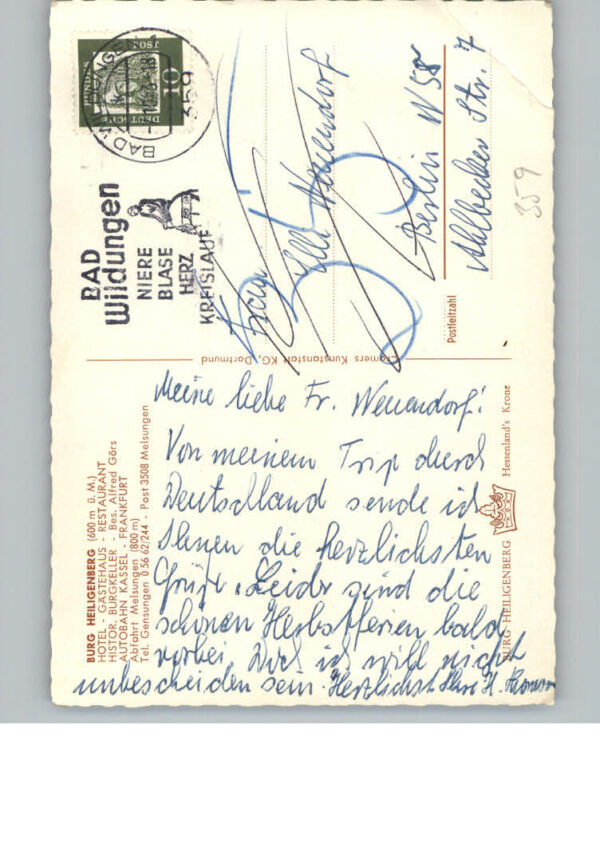 BURG HEILIGENBERG (600 m ü. M.)
HOTEL - GÄSTEHAUS - RESTAURANT
HISTOR. BURGKELLER - Bes. Alfred Görs
AUTOBAHN KASSEL - FRANKFURT
Abfahrt Melsungen (800 m)
Tel. Gensungen 0 56 62/244 - Post 3508 Melsungen
Meine liebe Fr. Neuendorf!
Von meinem Trip durch
Deutschland sende ich
Ihnen die herzlichsten
Grüße. Leider sind die
schönen Herbstferien bald
vorbei. Doch ich will nicht
unbescheiden sein. Herzlichst Ihre H.
BURG HEILIGENBERG Hessenland's Krone
Cramers Kunstanstalt KG, Dortmund
BAD
Wildungen
NIERE
BLASE
HERZ
KREISLAUF
BAD WILDUNGEN
359
DEUTSCHE
BUNDESPOST
10
Frau
Neuendorf
Berlin N 58
Ahlbecker Str. 7
Postleitzahl
359